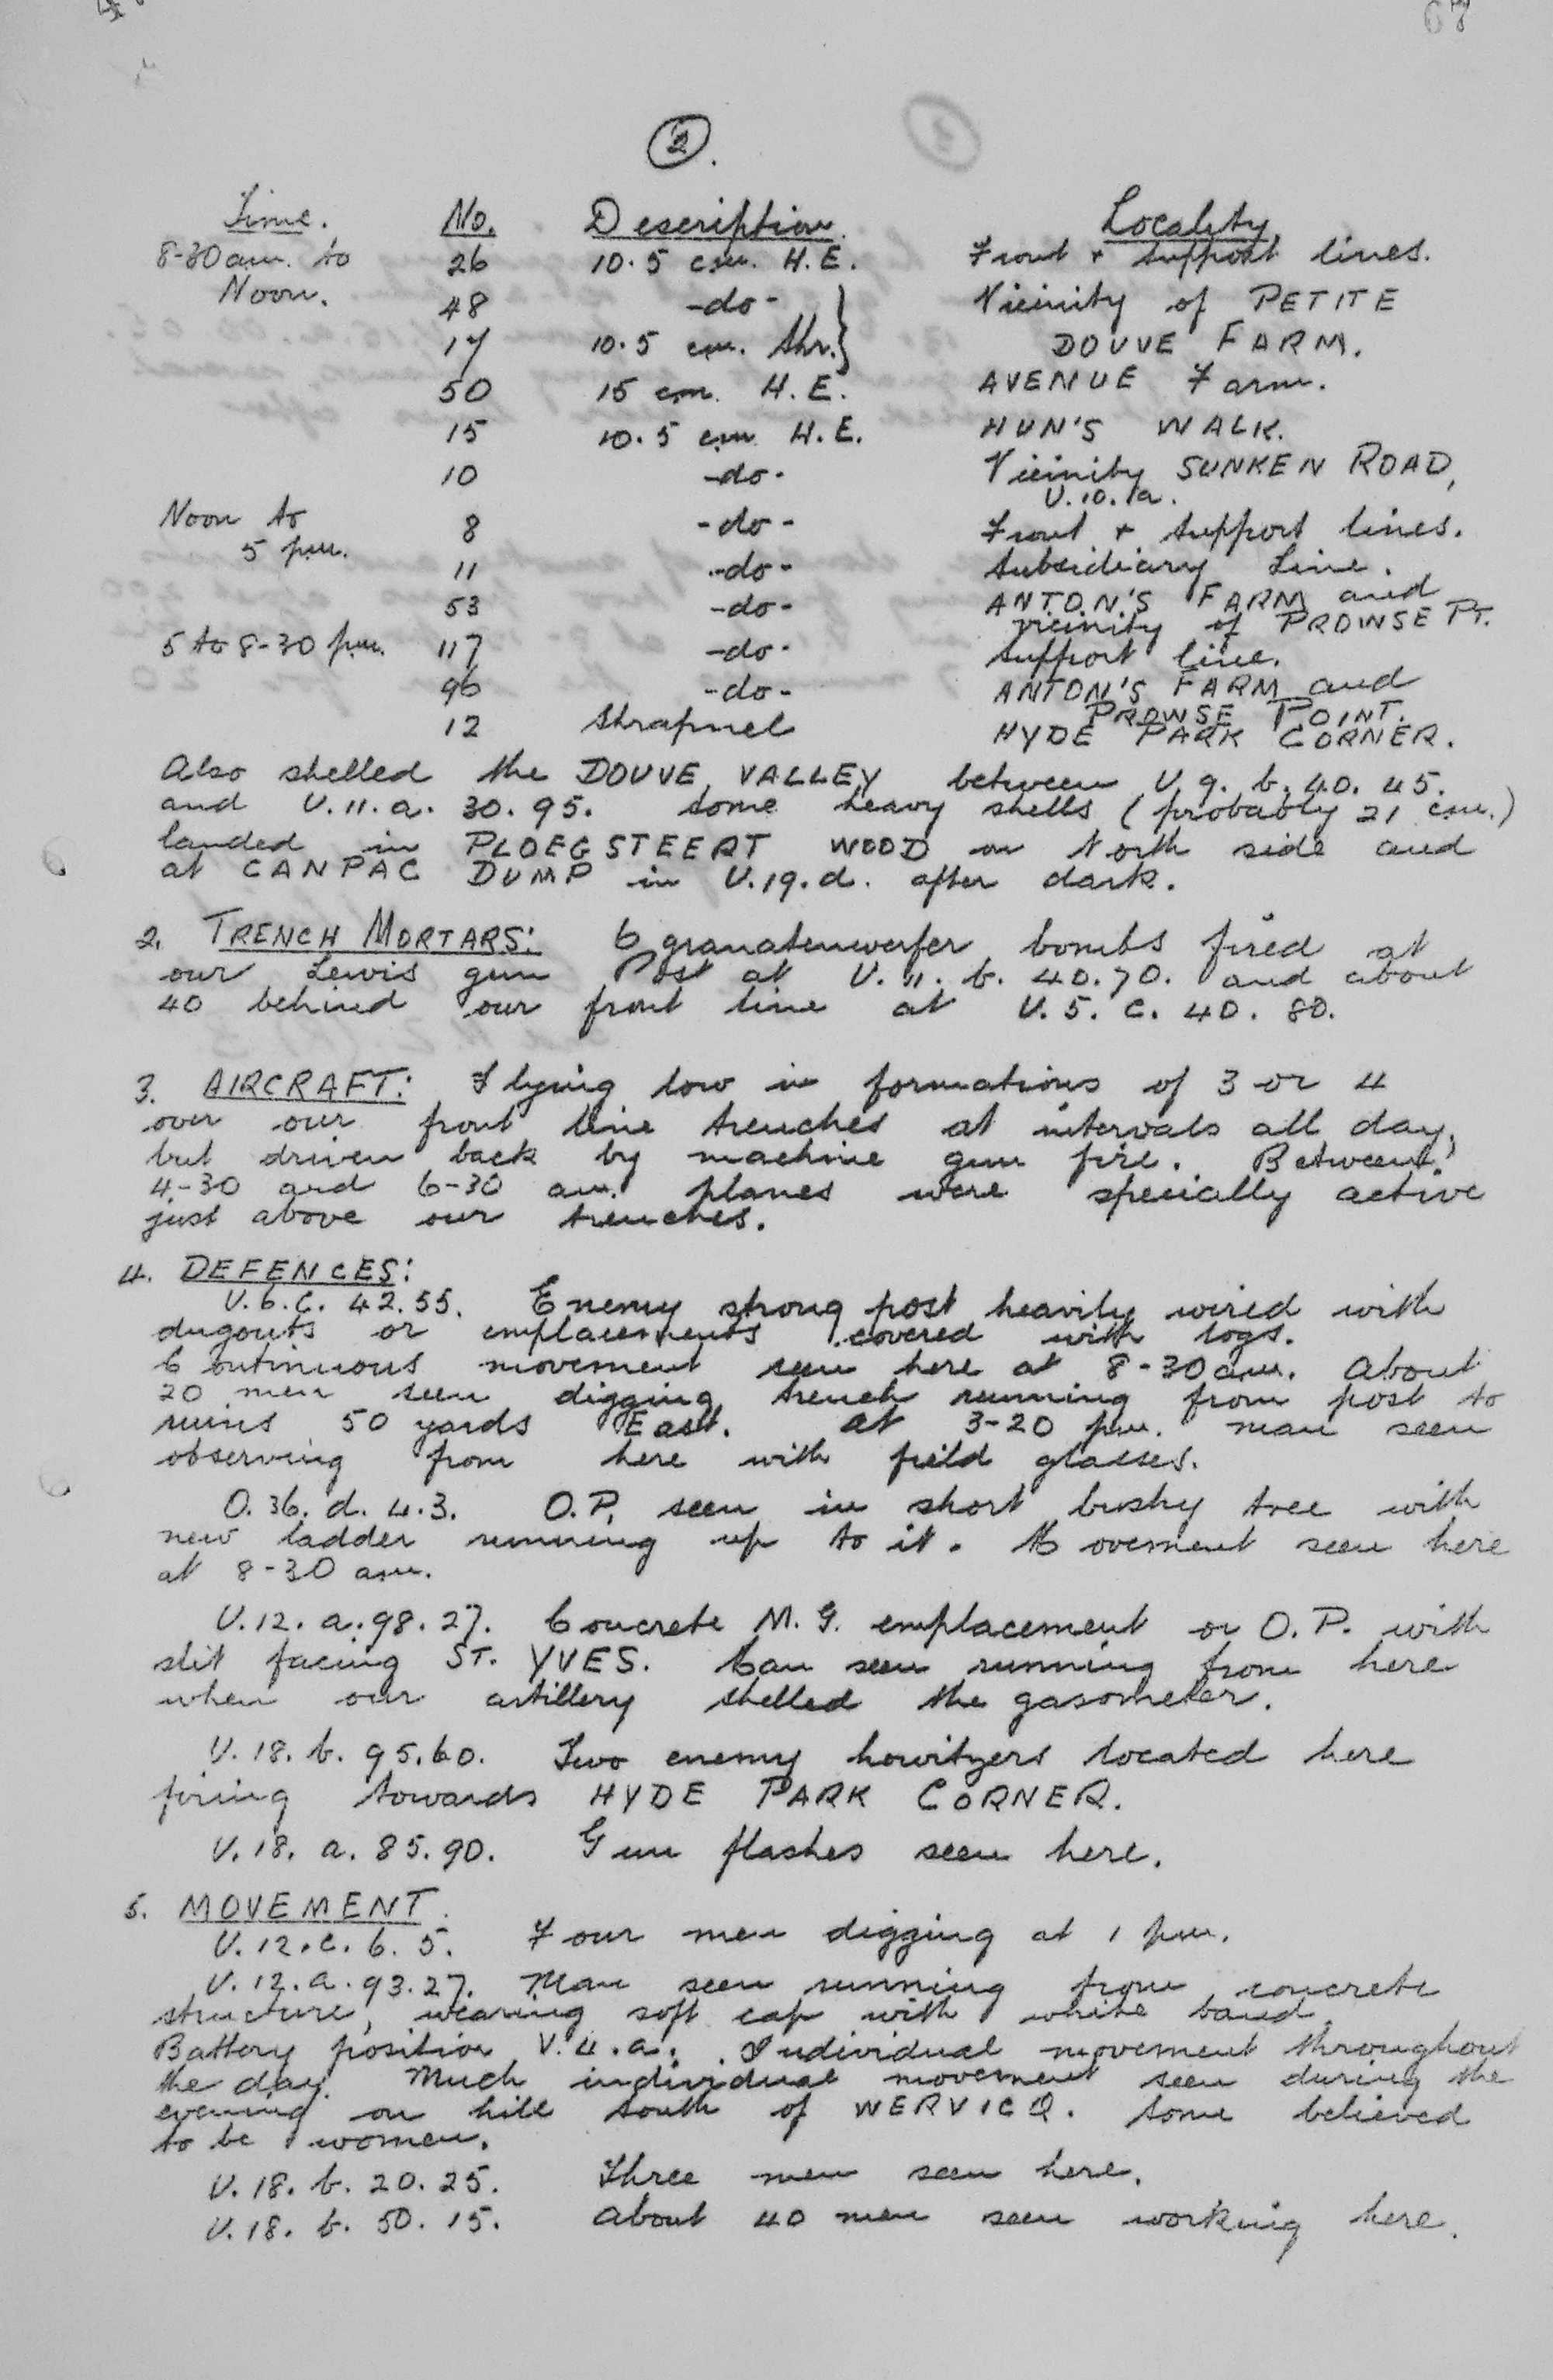 2.
Time. No. Description. Locality.
8-30 am. to 26 10.5 cm. H.E. Front & support lines.
Noon. 48 -do- } Vicinity of PETITE
17 10.5 cm. Shr. } DOUVE FARM.
50 15 cm. H.E. AVENUE Farm.
15 10.5 cm H.E. HUN'S WALK.
10 -do- Vicinity SUNKEN ROAD,
U.10.a.
Noon to 8 -do- Front & support lines.
5 pm. 11 -do- Subsidiary Line.
53 -do- ANTON'S FARM and
vicinity of PROWSE PT.
5 to 8-30 pm. 117 -do- Support line.
96 -do- ANTON'S FARM and
PROWSE POINT.
12 Shrapnel HYDE PARK CORNER.
Also shelled the DOUVE VALLEY between U.9.b.40.45.
and U.11.a.30.95. Some heavy shells (probably 21 cm.)
landed in PLOEGSTEERT WOOD on North side and
at CANPAC DUMP in U.19.d. after dark.
2. TRENCH MORTARS: 6 granatenwerfer bombs fired at
our Lewis gun Post at U.11.b.40.70. and about
40 behind our front line at U.5.c.40.80.
3. AIRCRAFT: Flying low in formations of 3 or 4
over our front line trenches at intervals all day,
but driven back by machine gun fire. Between
4-30 and 6-30 am. planes were specially active
just above our trenches.
4. DEFENCES:
U.6.c.42.55. Enemy strong post heavily wired with
dugouts or emplacements covered with logs.
Continuous movement seen here at 8-30 am. About
20 men seen digging trench running from post to
ruins 50 yards East. At 3-20 pm. man seen
observing from here with field glasses.
O.36.d.4.3. O.P. seen in short bushy tree with
new ladder running up to it. Movement seen here
at 8-30 am.
U.12.a.98.27. Concrete M.G. emplacement or O.P. with
slit facing ST. YVES. Man seen running from here
when our artillery shelled the gasometer.
U.18.b.95.60. Two enemy howitzers located here
firing towards HYDE PARK CORNER.
U.18.a.85.90. Gun flashes seen here.
5. MOVEMENT.
U.12.c.6.5. Four men digging at 1 pm.
U.12.a.93.27. Man seen running from concrete
structure, wearing soft cap with white band.
Battery position V.4.a. Individual movement throughout
the day. Much individual movement seen during the
evening on hill South of WERVICQ. Some believed
to be women.
U.18.b.20.25. Three men seen here.
U.18.b.50.15. About 40 men seen working here.